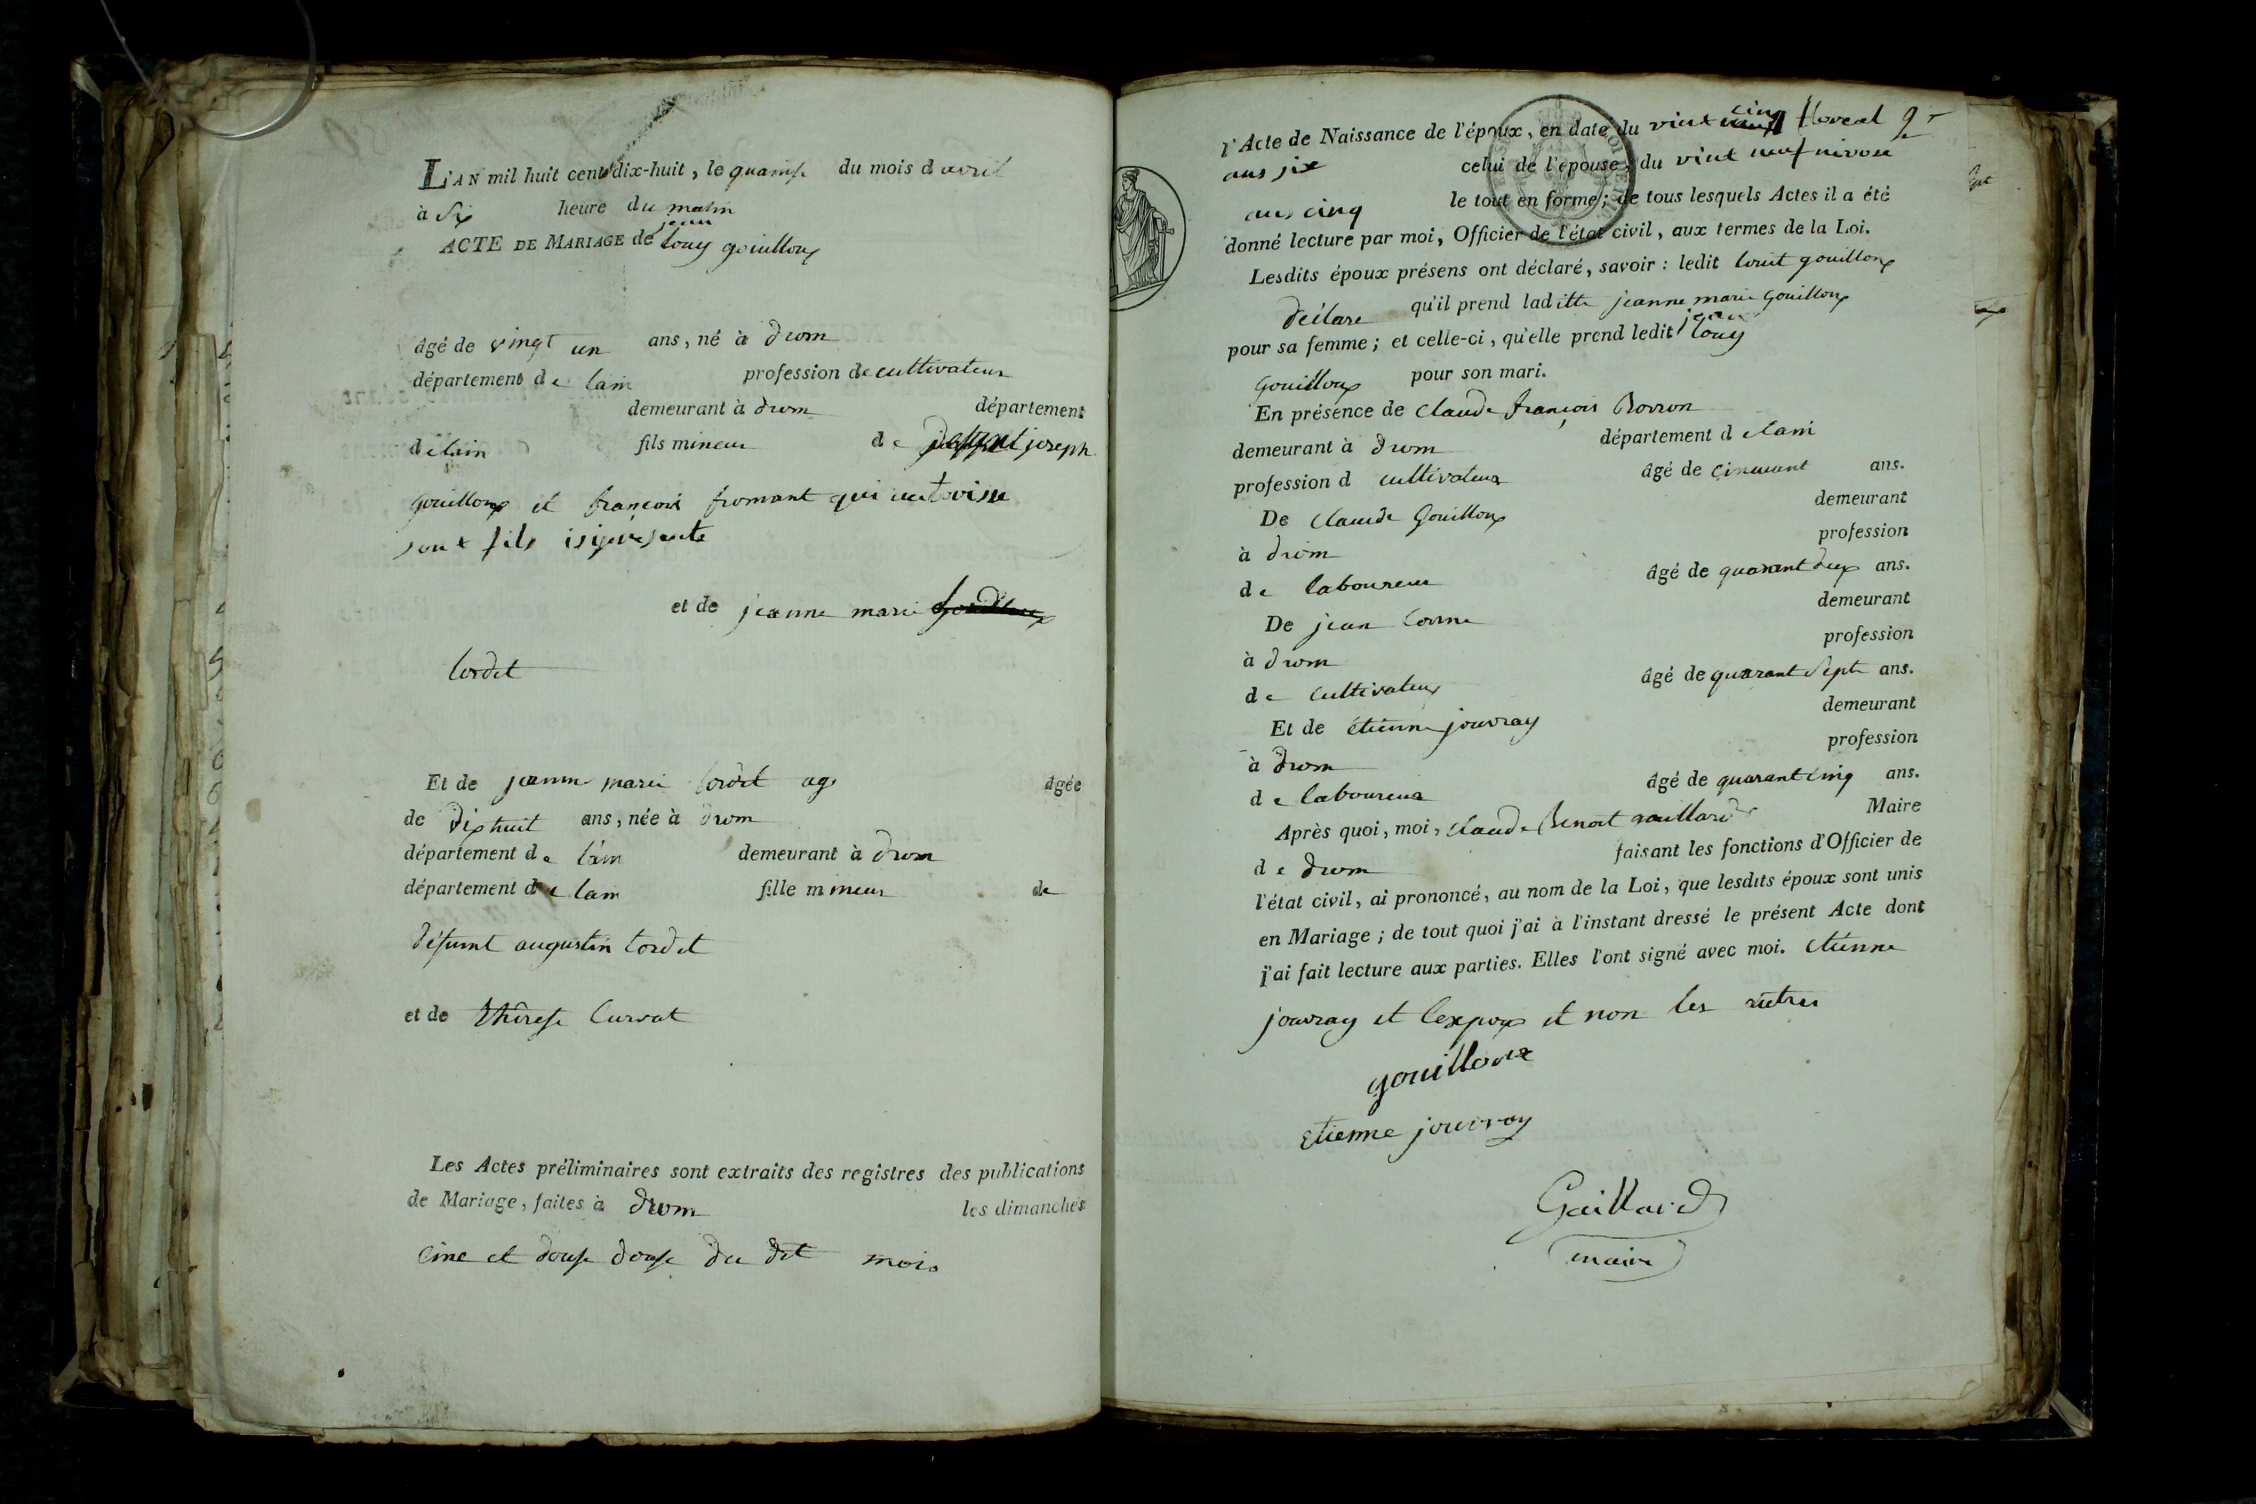 L'AN mil huit cent dix-huit, le quainse du mois d avril
à Six heure du matin
jean
ACTE DE MARIAGE de louy gouilloux
âgé de vingt un ans, né à drom
département de lain profession de cultivateur
demeurant à drom département
de lain fils mineur de joseph
gouilloux et françois fromant qui
sont fils
et de jeanne marie
tordet
Et de jeanne marie tordet age âgée
de dix huit ans, née à drom
département de lain demeurant à drom
département de lain fille mineur de
défunt augustin tordet
et de thérese curvat
Les Actes préliminaires sont extraits des registres des publications
de Mariage, faites à drom les dimanches
cinc et douse douse du dit mois
cinq
l'Acte de Naissance de l'époux, en date du vint floreal
ans six celui de l'épouse, du vint neuf nivose
ans cinq le tout en forme; de tous lesquels Actes il a été
donné lecture par moi, Officier de l'état civil, aux termes de la Loi.
Lesdits époux présens ont déclaré, savoir : ledit louit gouilloux
déclare qu'il prend laditte jeanne marie gouilloux
jean
pour sa femme; et celle-ci, qu'elle prend ledit louy
gouilloux pour son mari.
En présence de claude françois
demeurant à drom département de lain
profession d cultivateur âgé de cincuant ans.
De claude gouilloux demeurant
à drom profession
de laboureur âgé de quarant deux ans.
De jean demeurant
à drom profession
de cultivateur âgé de quarant sept ans.
Et de étienne jouvray demeurant
à drom profession
de laboureur âgé de quarant cinq ans.
Après quoi, moi, claude Benoit gaillard Maire
de drom faisant les fonctions d'Officier de
l'état civil, ai prononcé, au nom de la Loi, que lesdits époux sont unis
en Mariage; de tout quoi j'ai à l'instant dressé le présent Acte dont
j'ai fait lecture aux parties. Elles l'ont signé avec moi. etienne
jouvray et lexpoux et non les autres
gouilloux
etienne jouvray
Gaillard
maire